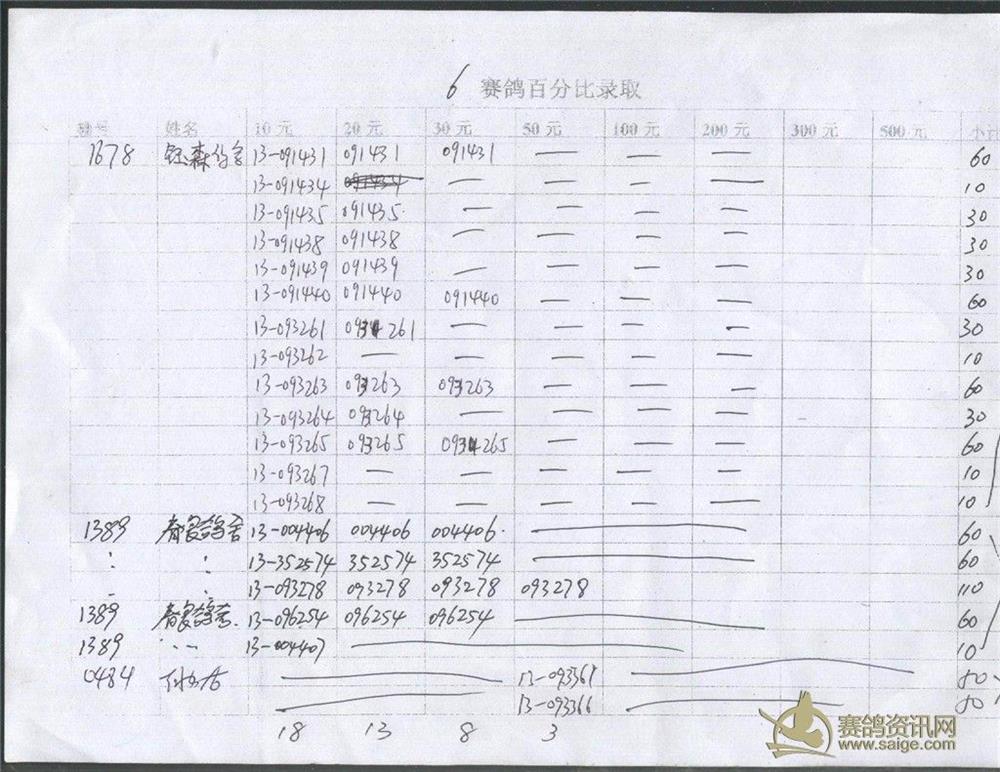 6 赛鸽百分比录取
棚号 姓名 10元 20元 30元 50元 100元 200元 300元 500元 小计
1678 钰森鸽舍 13-091431 091431 091431 — — — 60
13-091434 — — — — 10
13-091435 091435 — — — — 30
13-091438 091438 — — — — 30
13-091439 091439 — — — — 30
13-091440 091440 091440 — — — 60
13-093261 093261 — — — — 30
13-093262 — — — — — 10
13-093263 093263 093263 — — — 60
13-093264 093264 — — — — 30
13-093265 093265 093265 — — — 60
13-093267 — — — — — 10
13-093268 — — — — — 10
1389 13-004406 004406 004406 — 60
13-352574 352574 352574 — 60
13-093278 093278 093278 093278 110
1389 13-096254 096254 096254 — 60
1389 13-004407 — 10
0484 — 13-093361 — 80
— 13-093366 — 80
18 13 8 3
赛鸽资讯网
www.saige.com